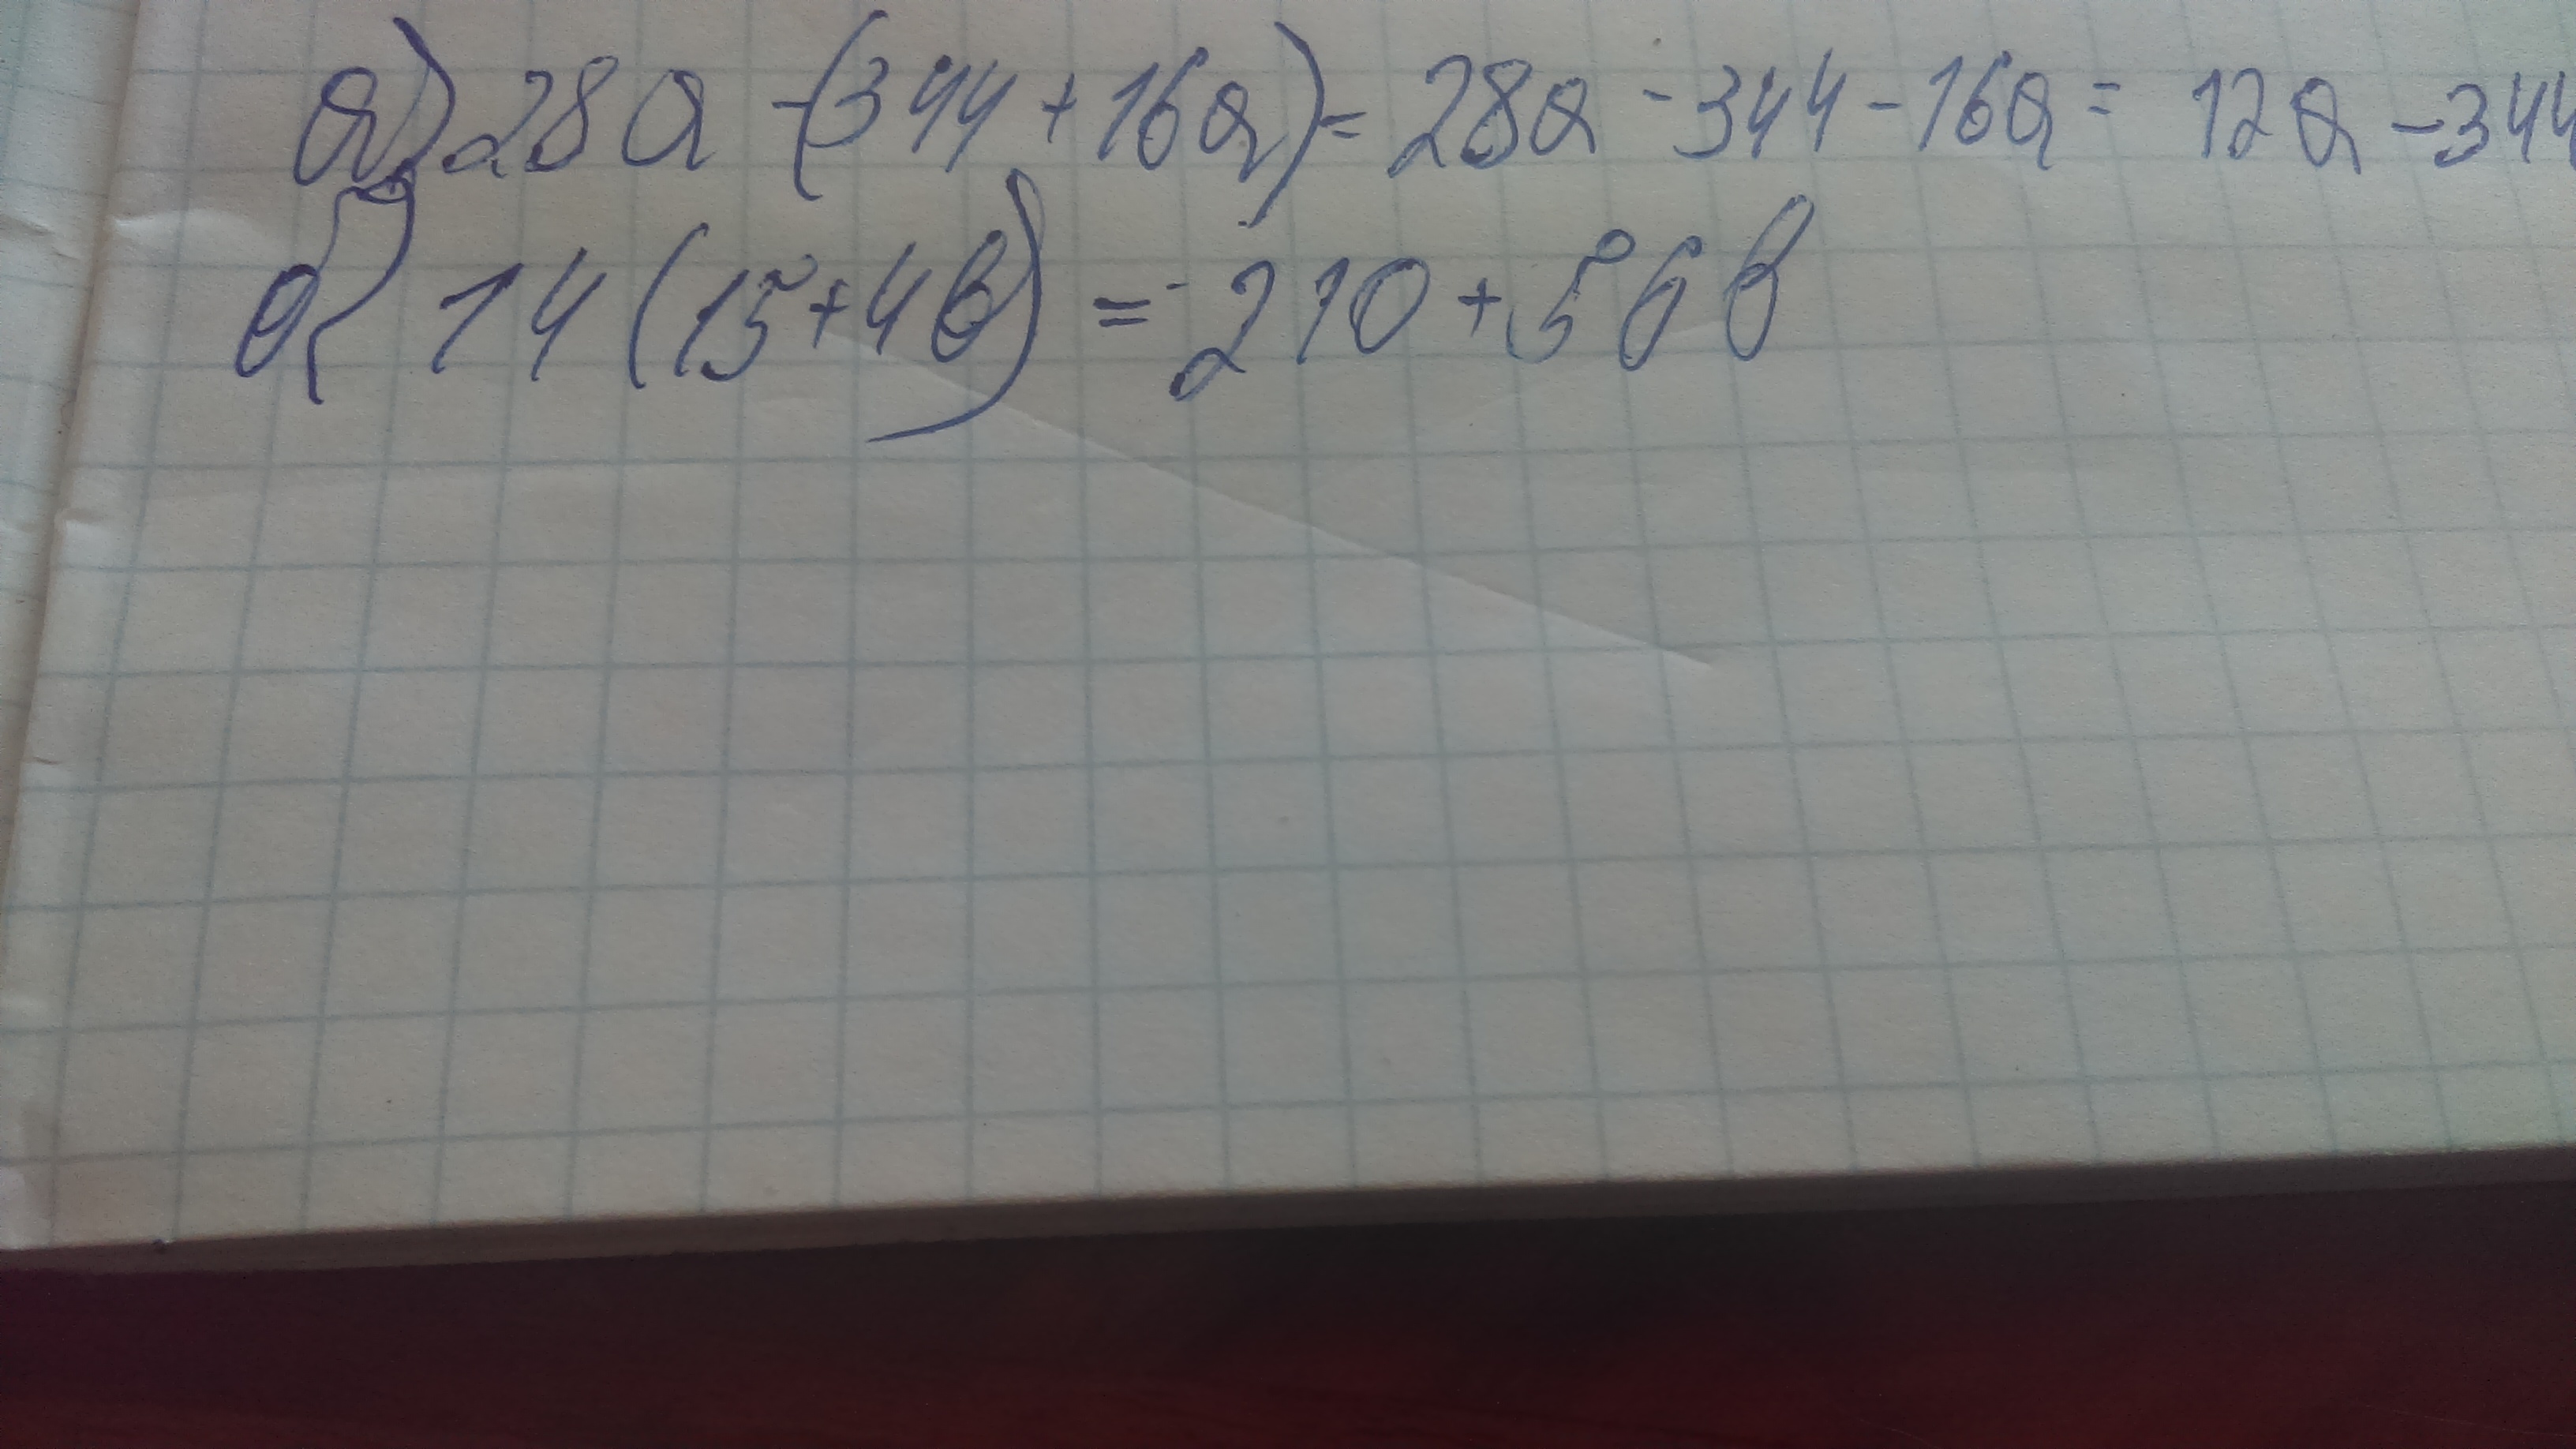 а) 28a -(344 + 16a) = 28a - 344 - 16a = 12a - 344
б) 14 (15 + 4в) = 210 + 56в